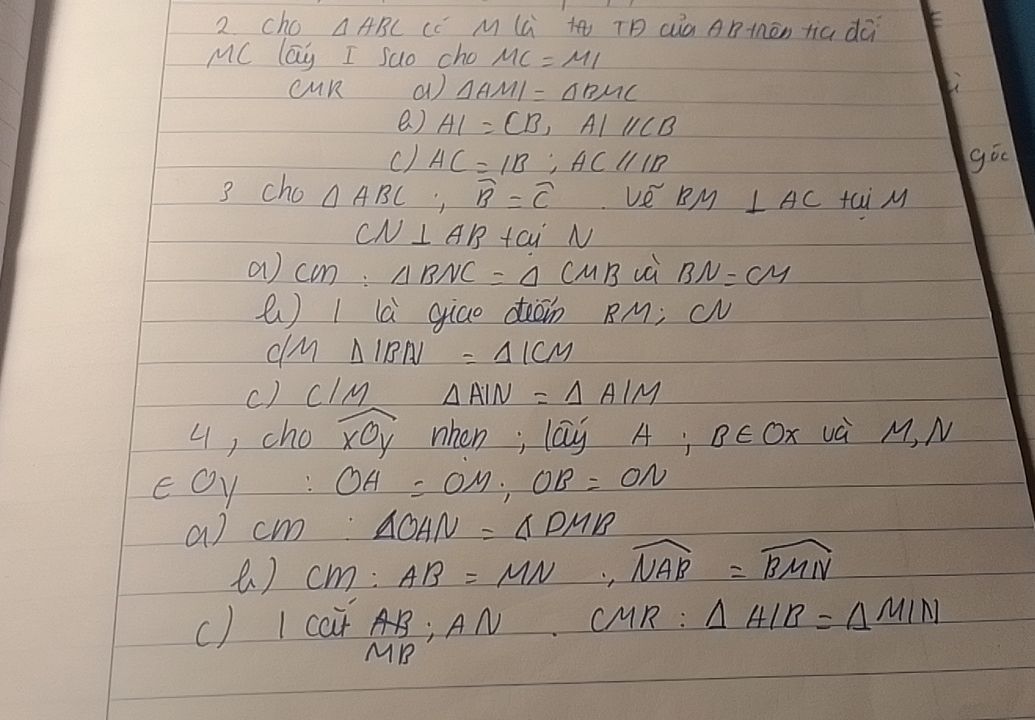 2. Cho Δ ABC có M là TĐ của AB trên tia đối
MC lấy I sao cho MC = MI
CMR a) ΔAMI = ΔBMC
b) AI = CB, AI // CB
c) AC = IB ; AC // IB
góc
3 Cho Δ ABC ; B̂ = Ĉ . Vẽ BM ⊥ AC tại M
CN ⊥ AB tại N
a) cm : ΔBNC = Δ CMB và BN = CM
b) I là giao điểm BM ; CN
C/M ΔIBN = ΔICM
c) C/M ΔAIN = Δ AIM
4, cho xOy nhọn ; lấy A ; B ∈ Ox và M, N
∈ Oy : OA = OM ; OB = ON
a) cm : ΔOAN = Δ OMB
b) cm : AB = MN ; NAB = BMN
c) I cắt MB ; AN . CMR : Δ AIB = Δ MIN